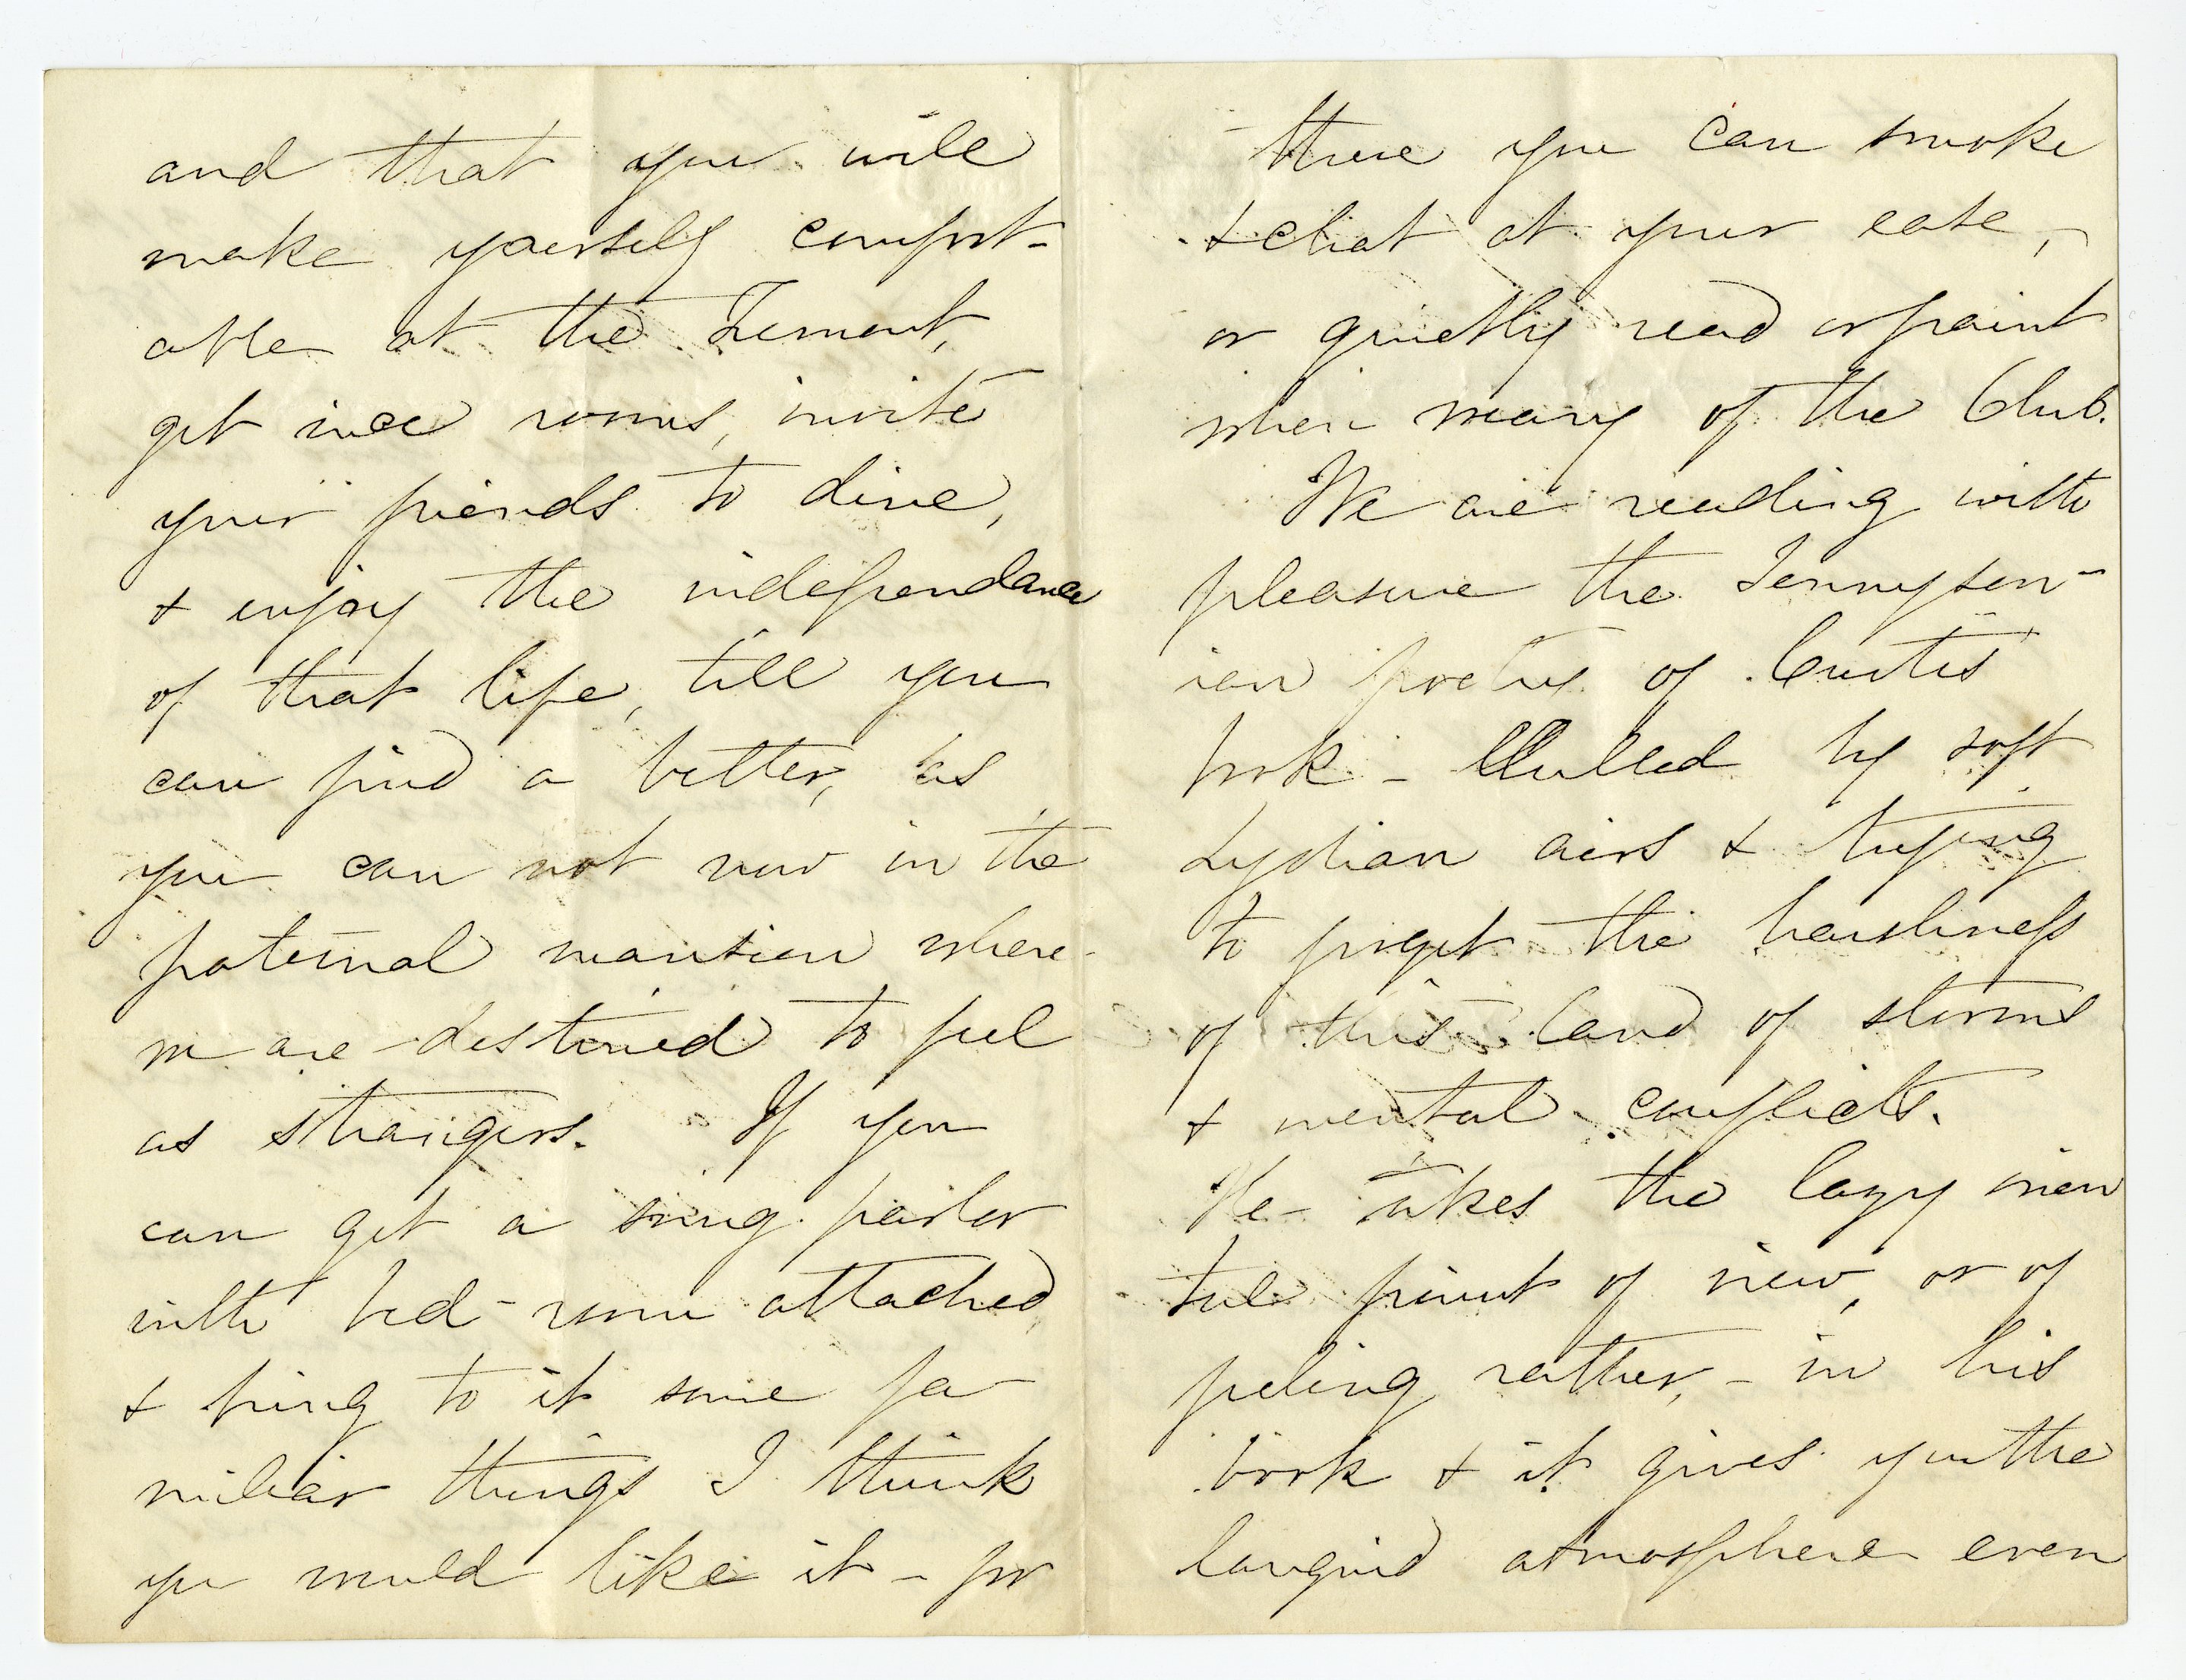 and that you will
make yourself comfort-
able at the Tremont,
get nice rooms, invite
your friends to dine,
& enjoy the independance
of that life, till you
can find a better, as
you can not now in the
paternal mansion where-
in are destined to feel
as strangers. If you
can get a snug parlor
with bed-room attached
& bring to it some fa-
miliar things I think
you would like it - for
there you can smoke
& chat at your ease,
or quietly read or paint
when weary of the Club.
We are reading with
pleasure the Tennyson-
ian poetry of Curtis
book - lulled by soft
Lydian airs & trying
to forget the harshness
of this land of storms
& mental conflicts.
He takes the lazy men
tal point of view, or of
feeling rather, - in his
book & it gives you the
languid atmosphere even